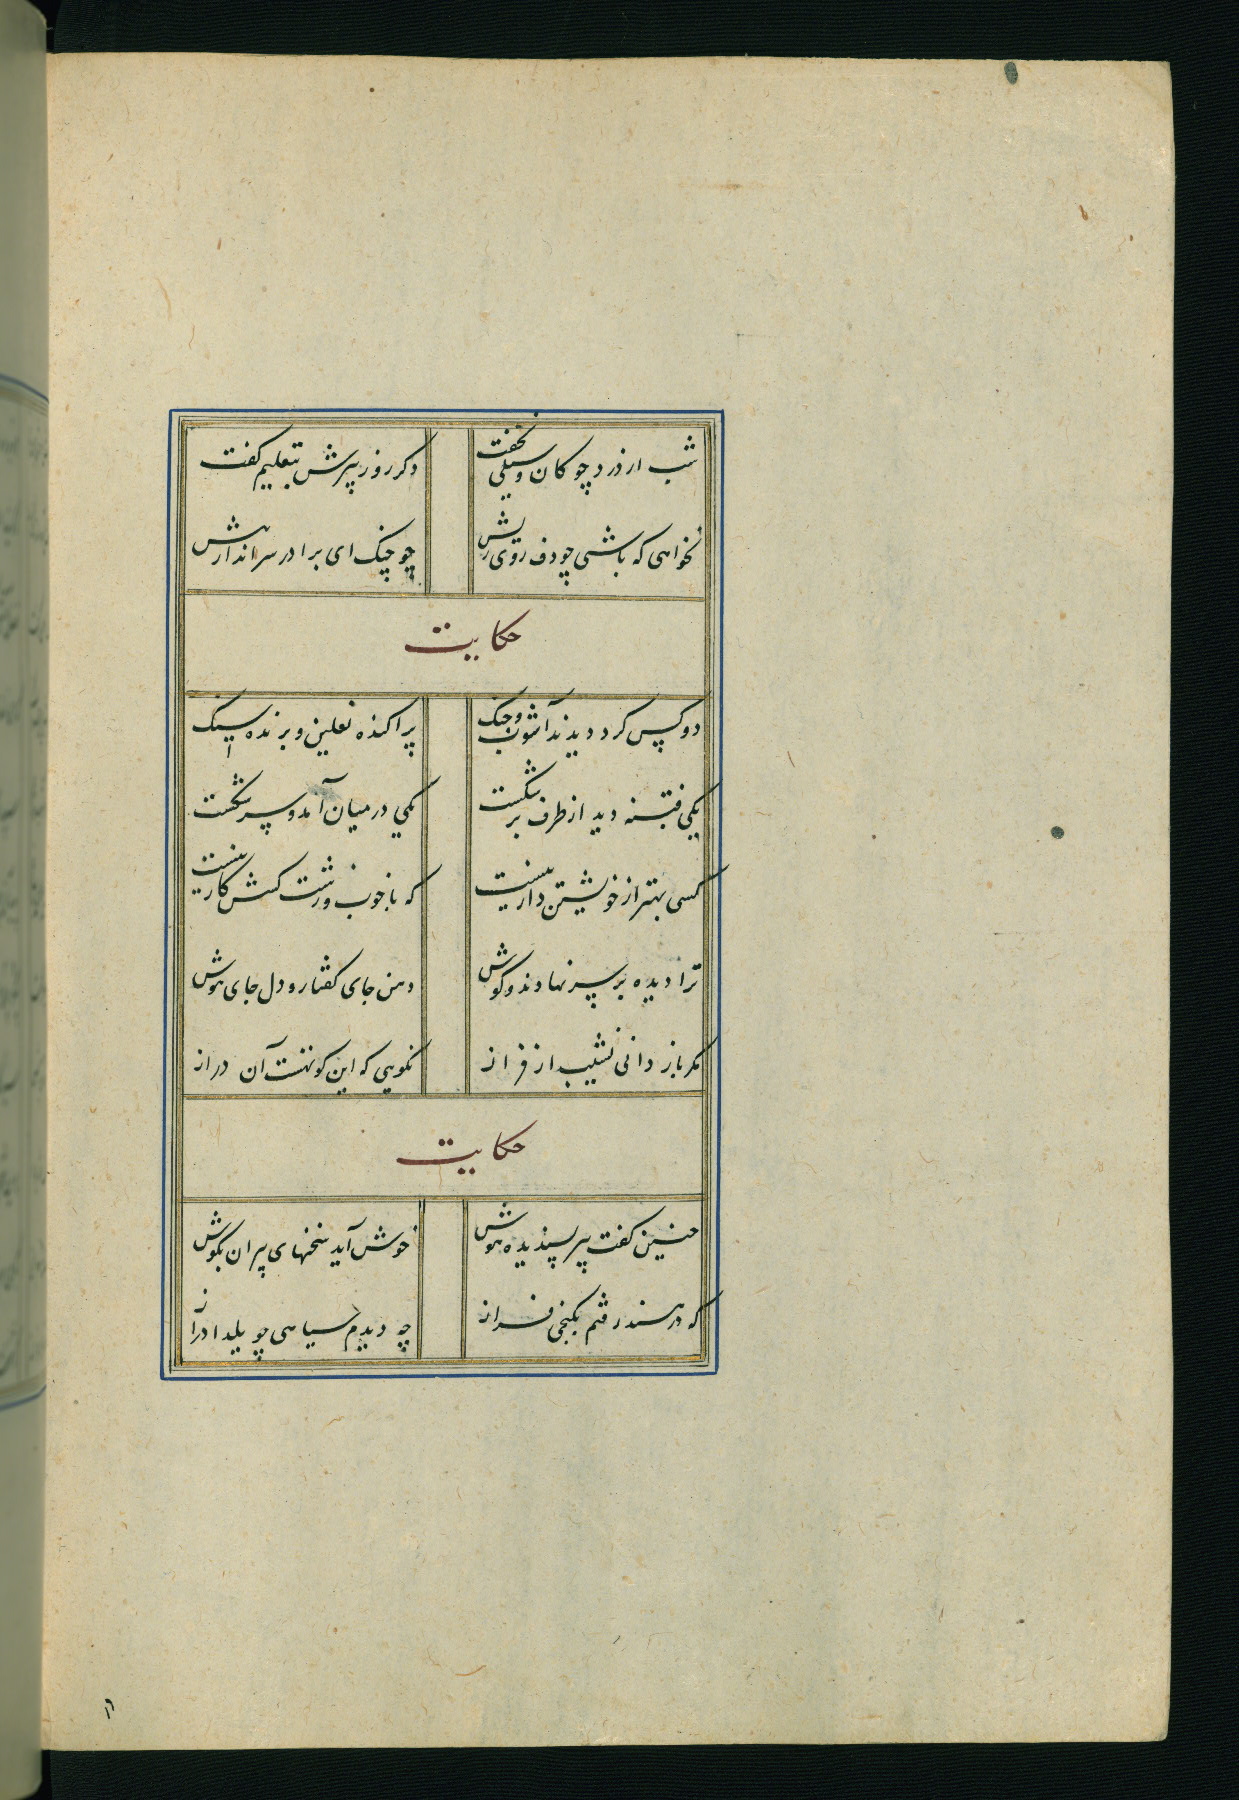 شب از درد چوکان و سیلی نخفت
دکر روز پیرش بتعلیم کفت
نخواهی که باشی چو دف روی ریش
چو چنک ای برادر سر انداز پیش
حکایت
دو کس کرد دیدند آشوب و جنک
پراکنده نعلین و پرنده سنک
یکی فتنه دید از طرف بر شکست
یکی در میان آمد و سر شکست
کسی بهتر از خویشتن دار نیست
که با خوب و زشت کسش کار نیست
ترا دیده بر سر نهادند و کوش
دهن جای کفتار و دل جای هوش
مکر باز دانی نشیب از فراز
نکویی که این کوتهست آن دراز
حکایت
چنین کفت پیر پسندیده هوش
خوش آید سخنهای پیران بکوش
که در هند رفتم بکنجی فراز
چه دیدم سیاهی چو یلدا دراز